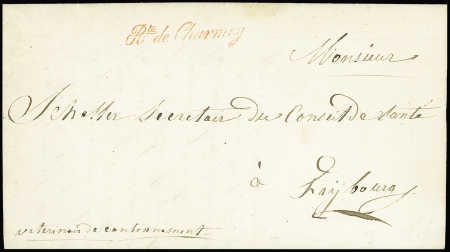 Rte de Charmey
Monsieur
Scheller Secretair du Conseil de santé
à
Frÿbourg
veterinair de cantonnement